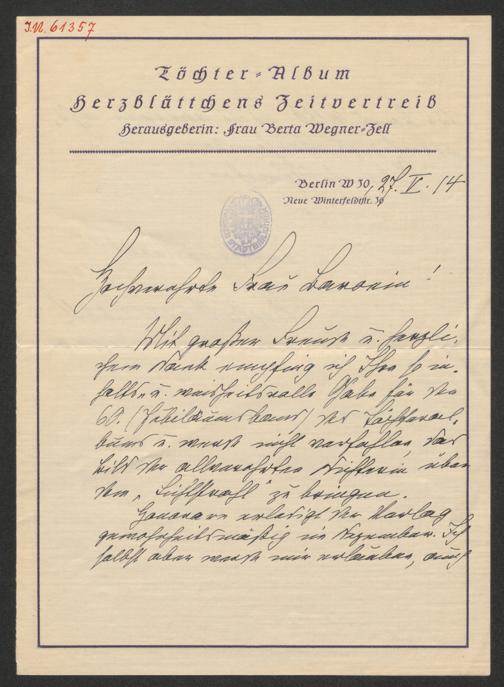 J.N. 61357
Töchter-Album
Herzblättchens Zeitvertreib
Herausgeberin: Frau Berta Wegner-Zell
Berlin W 30, 27. V. 14
Neue Winterfeldtstr. 36
Hochverehrte Frau Baronin!
Mit großer Freude u. herzli-
chem Dank empfing ich Ihre so in-
halts- u. weisheitsvolle Gabe für den
60. (Jubiläumsband) des Töchteral-
bums u. werde nicht verfehlen, das
Bild der allverehrten Dichterin über
dem „Lichtstrahl" zu bringen.
Honorare erledigt der Verlag
gewohnheitsmäßig im Dezember. Ich
selbst aber werde mir erlauben, auch